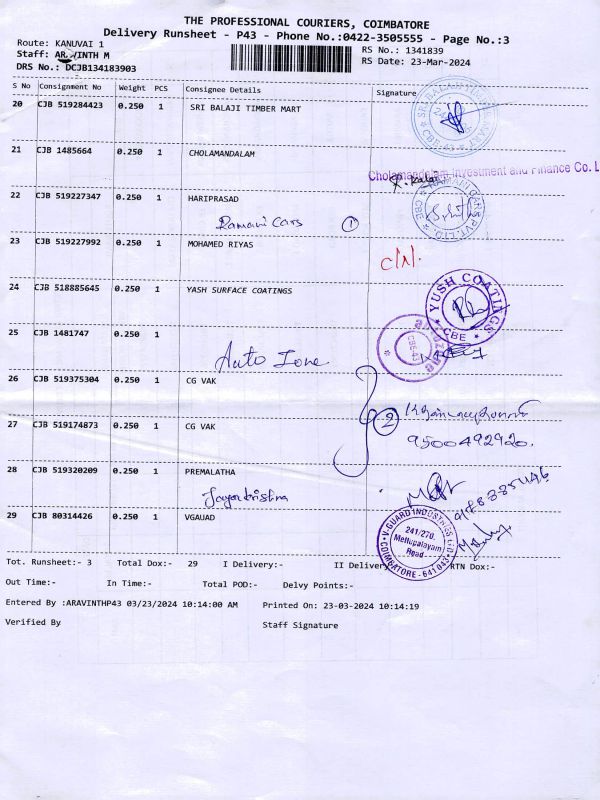 THE PROFESSIONAL COURIERS, COIMBATORE
Delivery Runsheet - P43 - Phone No.:0422-3505555 - Page No.:3
Route: KANUVAI 1
RS No.: 1341839
Staff: ARAVINTH M
RS Date: 23-Mar-2024
DRS No.: DCJB134183903
S No Consignment No Weight PCS Consignee Details Signature
20 CJB 519284423 0.250 1 SRI BALAJI TIMBER MART
21 CJB 1485664 0.250 1 CHOLAMANDALAM
Cholamandalam Investment and Finance Co. L
22 CJB 519227347 0.250 1 HARIPRASAD
Ramani Cars 1
23 CJB 519227992 0.250 1 MOHAMED RIYAS
24 CJB 518885645 0.250 1 YASH SURFACE COATINGS
YUSH COATINGS
* CBE *
25 CJB 1481747 0.250 1
Auto Zone
CBE-43
26 CJB 519375304 0.250 1 CG VAK
2
27 CJB 519174873 0.250 1 CG VAK
9500492920.
28 CJB 519320209 0.250 1 PREMALATHA
Jayakrishna
29 CJB 80314426 0.250 1 VGAUAD
V-GUARD INDUSTRIES LTD
241/270,
Mettupalayam
Road
COIMBATORE - 641 043
Tot. Runsheet:- 3 Total Dox:- 29 I Delivery:- II Delivery RTN Dox:-
Out Time:- In Time:- Total POD:- Delvy Points:-
Entered By :ARAVINTHP43 03/23/2024 10:14:00 AM Printed On: 23-03-2024 10:14:19
Verified By Staff Signature